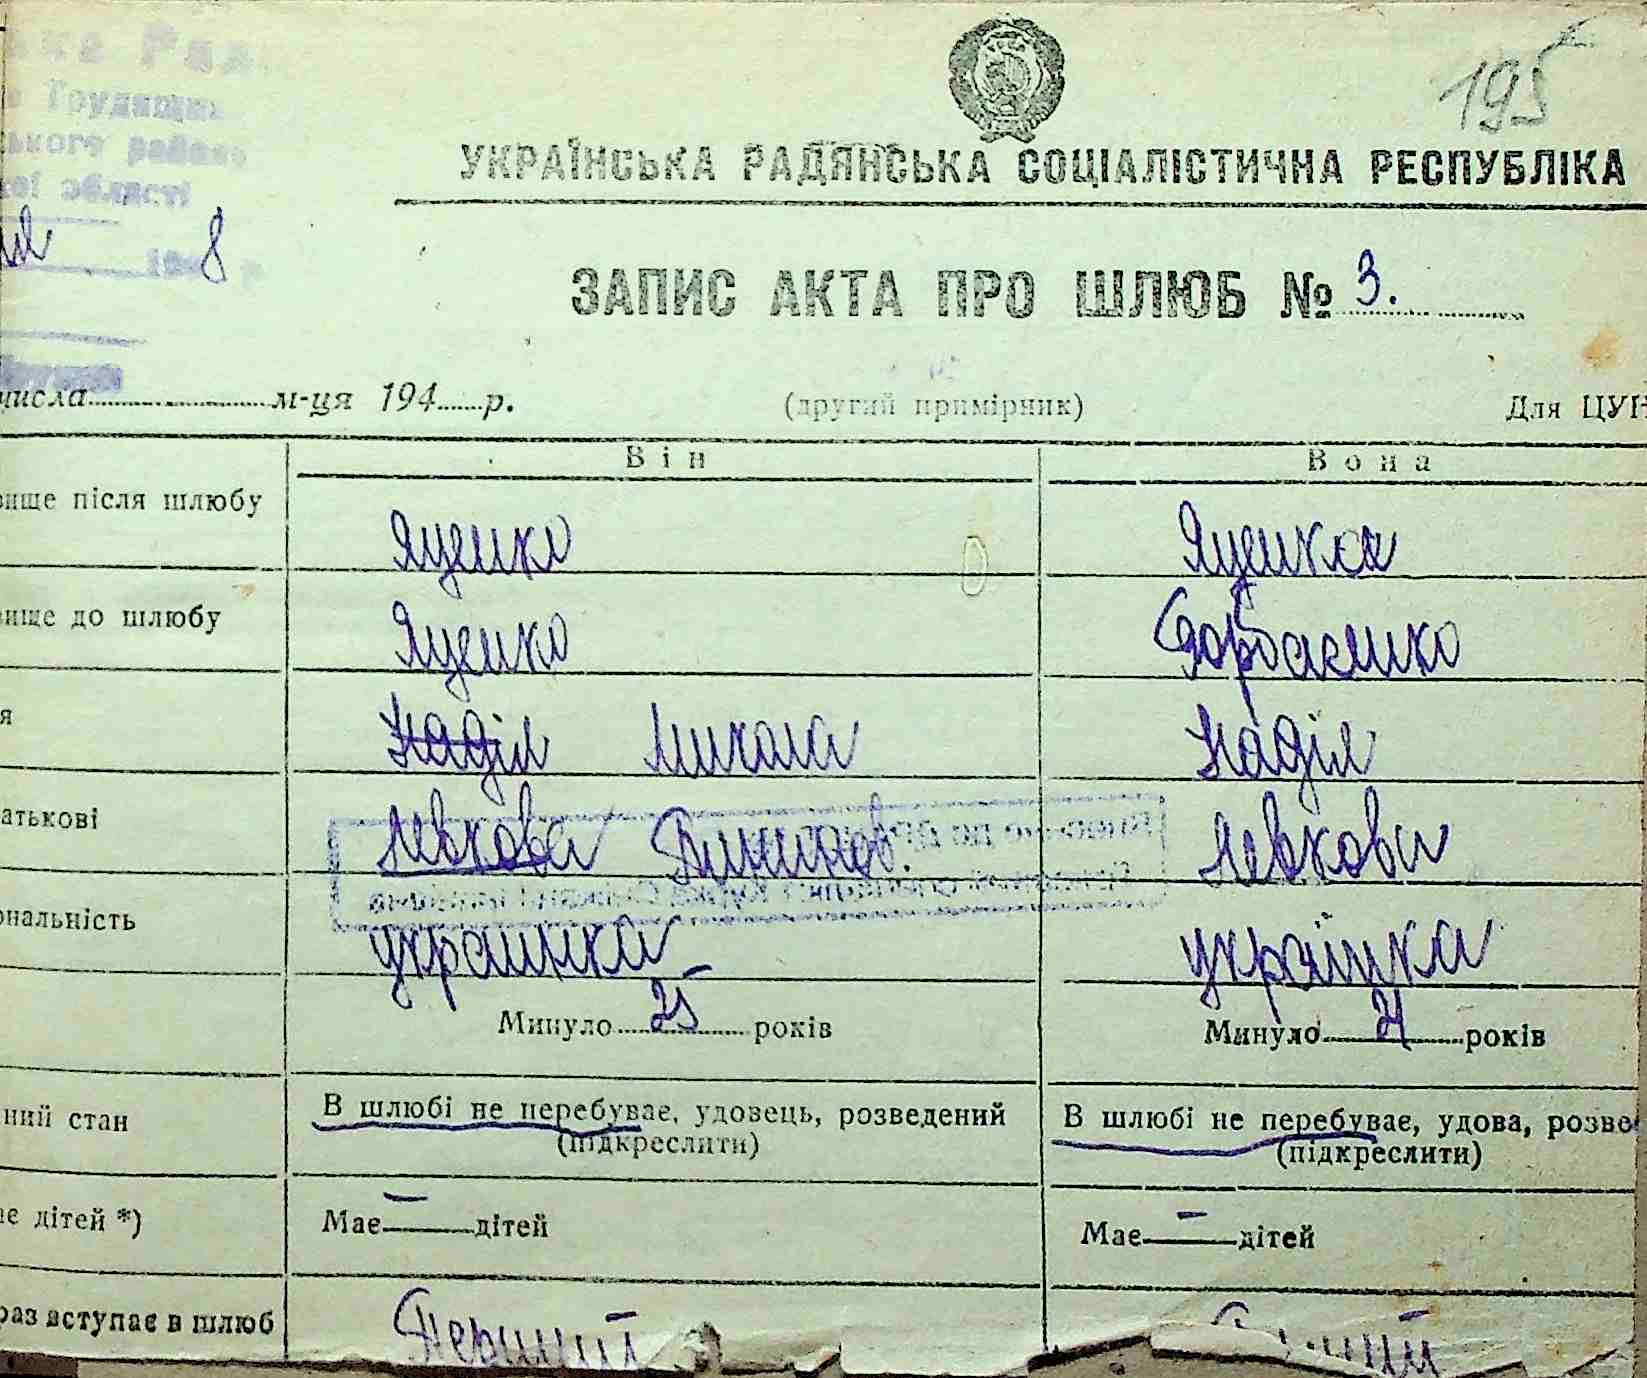 195
Рад
Трудящих
ького району
ої області
8
УКРАЇНСЬКА РАДЯНСЬКА СОЦІАЛІСТИЧНА РЕСПУБЛІКА
ЗАПИС АКТА ПРО ШЛЮБ № 3.
числа м-ця 194 р. (другий примірник) Для ЦУН
Він Вона
вище після шлюбу Яценко Яценко
вище до шлюбу Яценко Горбаченко
я Надія Микола Надія
атькові Левкова Левкова
ональність українка українка
Минуло 25 років Минуло 21 років
ний стан В шлюбі не перебуває, удовець, розведений В шлюбі не перебуває, удова, розве
(підкреслити) (підкреслити)
ає дітей *) Має — дітей Має — дітей
раз вступає в шлюб Перший